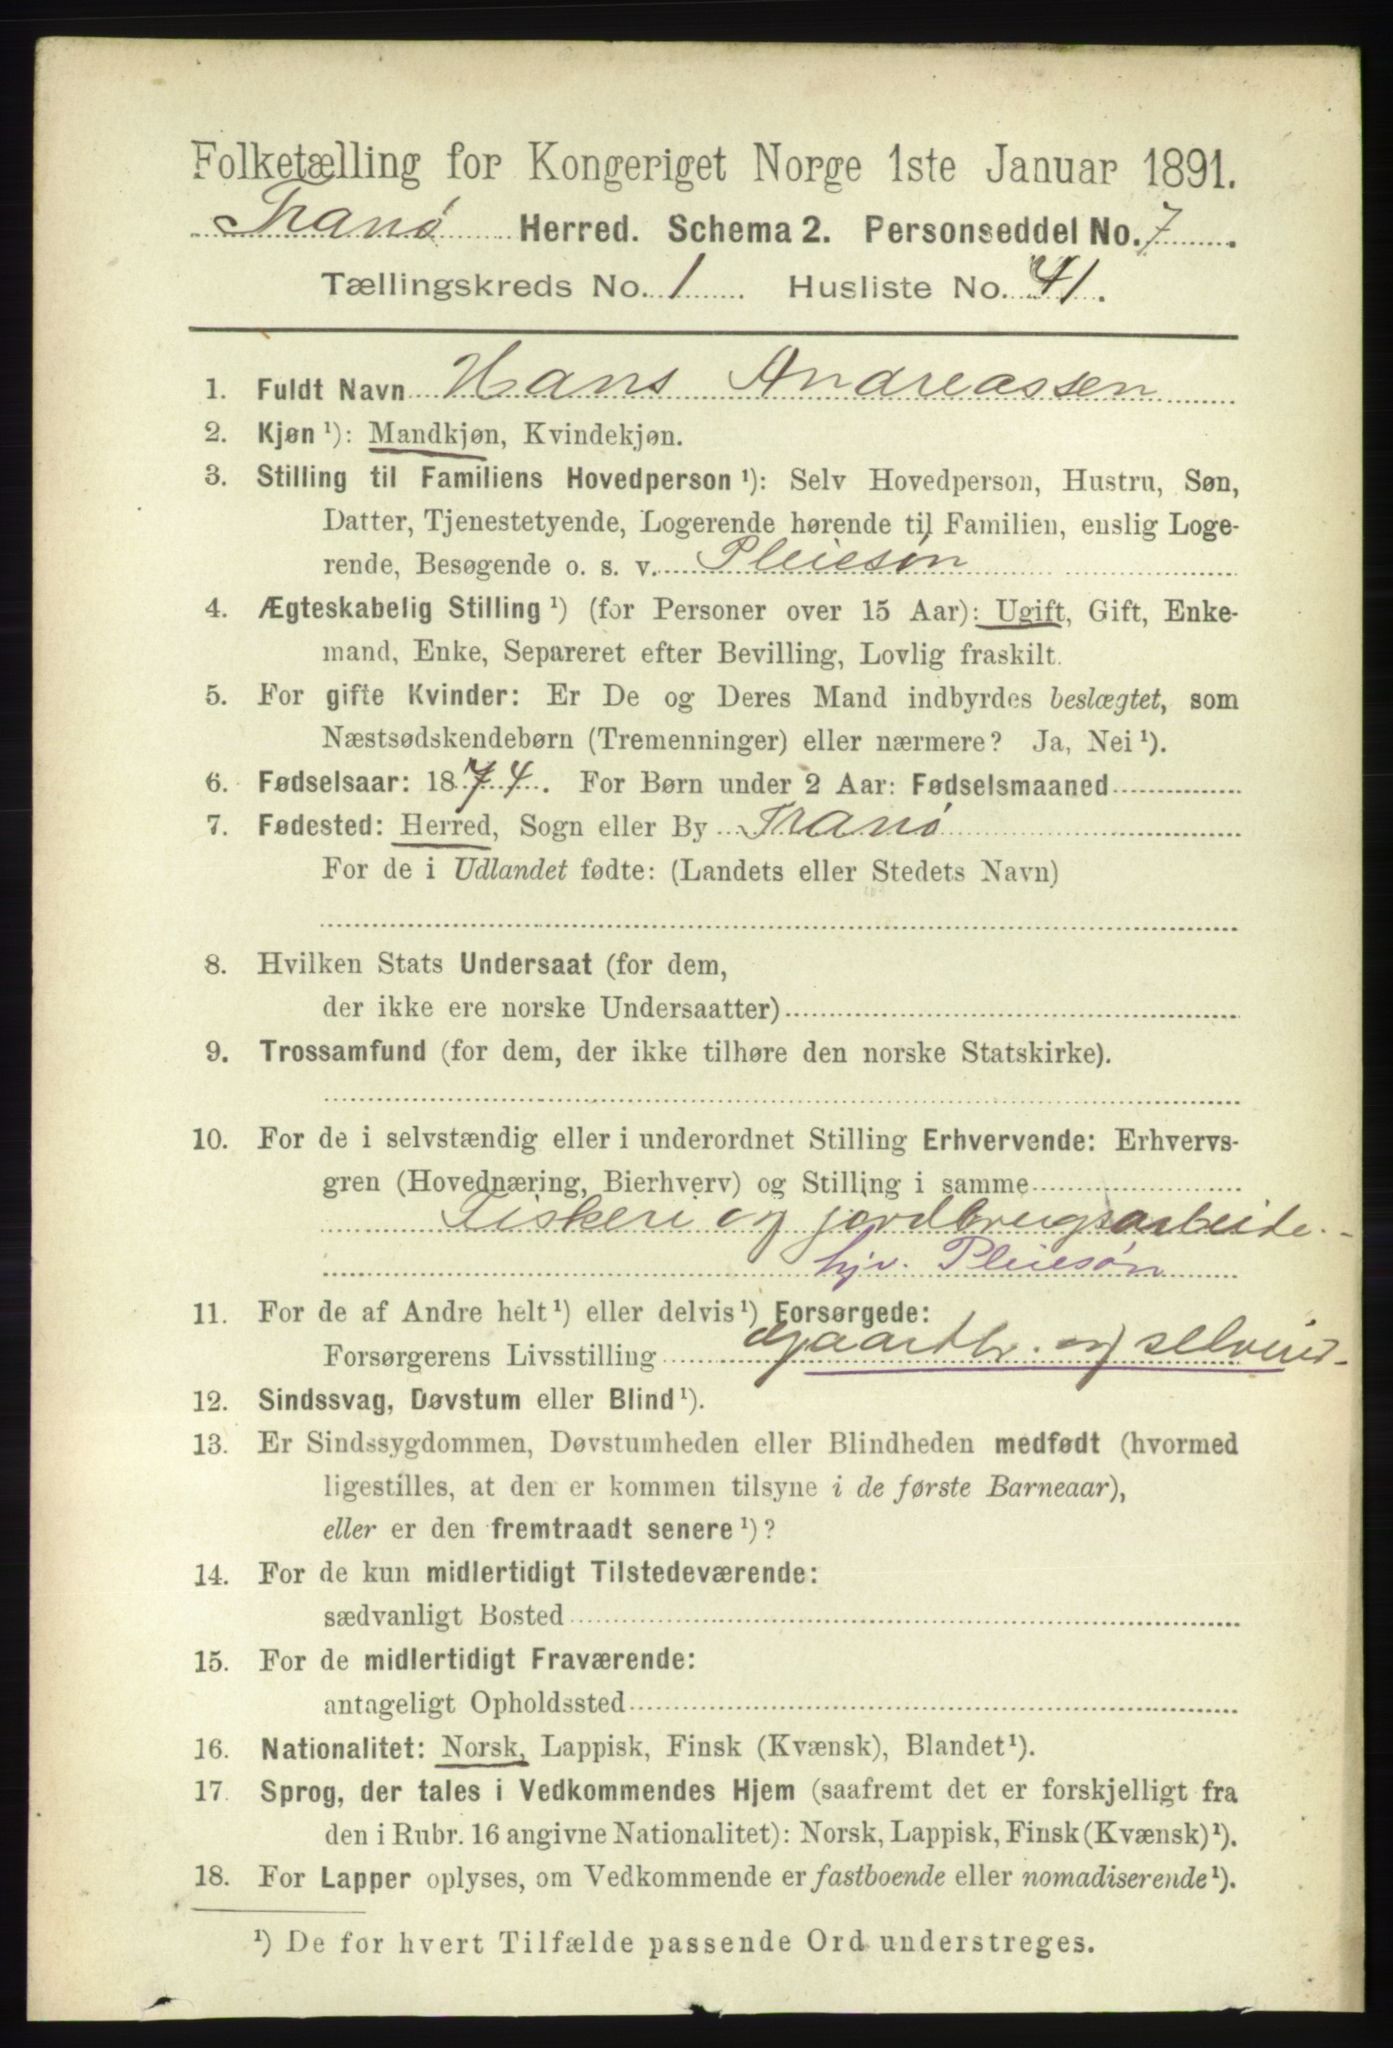 Folketælling for Kongeriget Norge 1ste Januar 1891.
Tranø Herred. Schema 2. Personseddel No. 7.
Tællingskreds No. 1 Husliste No. 41.
1. Fuldt Navn Hans Andreassen
2. Kjøn ¹): Mandkjøn, Kvindekjøn.
3. Stilling til Familiens Hovedperson ¹): Selv Hovedperson, Hustru, Søn,
Datter, Tjenestetyende, Logerende hørende til Familien, enslig Loge-
rende, Besøgende o. s. v. Pleiesøn
4. Ægteskabelig Stilling ¹) (for Personer over 15 Aar): Ugift, Gift, Enke-
mand, Enke, Separeret efter Bevilling, Lovlig fraskilt.
5. For gifte Kvinder: Er De og Deres Mand indbyrdes beslægtet, som
Næstsødskendebørn (Tremenninger) eller nærmere? Ja, Nei ¹).
6. Fødselsaar: 1874. For Børn under 2 Aar: Fødselsmaaned
7. Fødested: Herred, Sogn eller By Tranø
For de i Udlandet fødte: (Landets eller Stedets Navn)
8. Hvilken Stats Undersaat (for dem,
der ikke ere norske Undersaatter)
9. Trossamfund (for dem, der ikke tilhøre den norske Statskirke).
10. For de i selvstændig eller i underordnet Stilling Erhvervende: Erhvervs-
gren (Hovednæring, Bierhverv) og Stilling i samme
Fiskeri og jordbrugsarbeide.
hjv. Pleiesøn
11. For de af Andre helt ¹) eller delvis ¹) Forsørgede:
Forsørgerens Livsstilling gaardbr. og selveier
12. Sindssvag, Døvstum eller Blind ¹).
13. Er Sindssygdommen, Døvstumheden eller Blindheden medfødt (hvormed
ligestilles, at den er kommen tilsyne i de første Barneaar),
eller er den fremtraadt senere ¹)?
14. For de kun midlertidigt Tilstedeværende:
sædvanligt Bosted
15. For de midlertidigt Fraværende:
antageligt Opholdssted
16. Nationalitet: Norsk, Lappisk, Finsk (Kvænsk), Blandet ¹).
17. Sprog, der tales i Vedkommendes Hjem (saafremt det er forskjelligt fra
den i Rubr. 16 angivne Nationalitet): Norsk, Lappisk, Finsk (Kvænsk) ¹).
18. For Lapper oplyses, om Vedkommende er fastboende eller nomadiserende ¹).
¹) De for hvert Tilfælde passende Ord understreges.